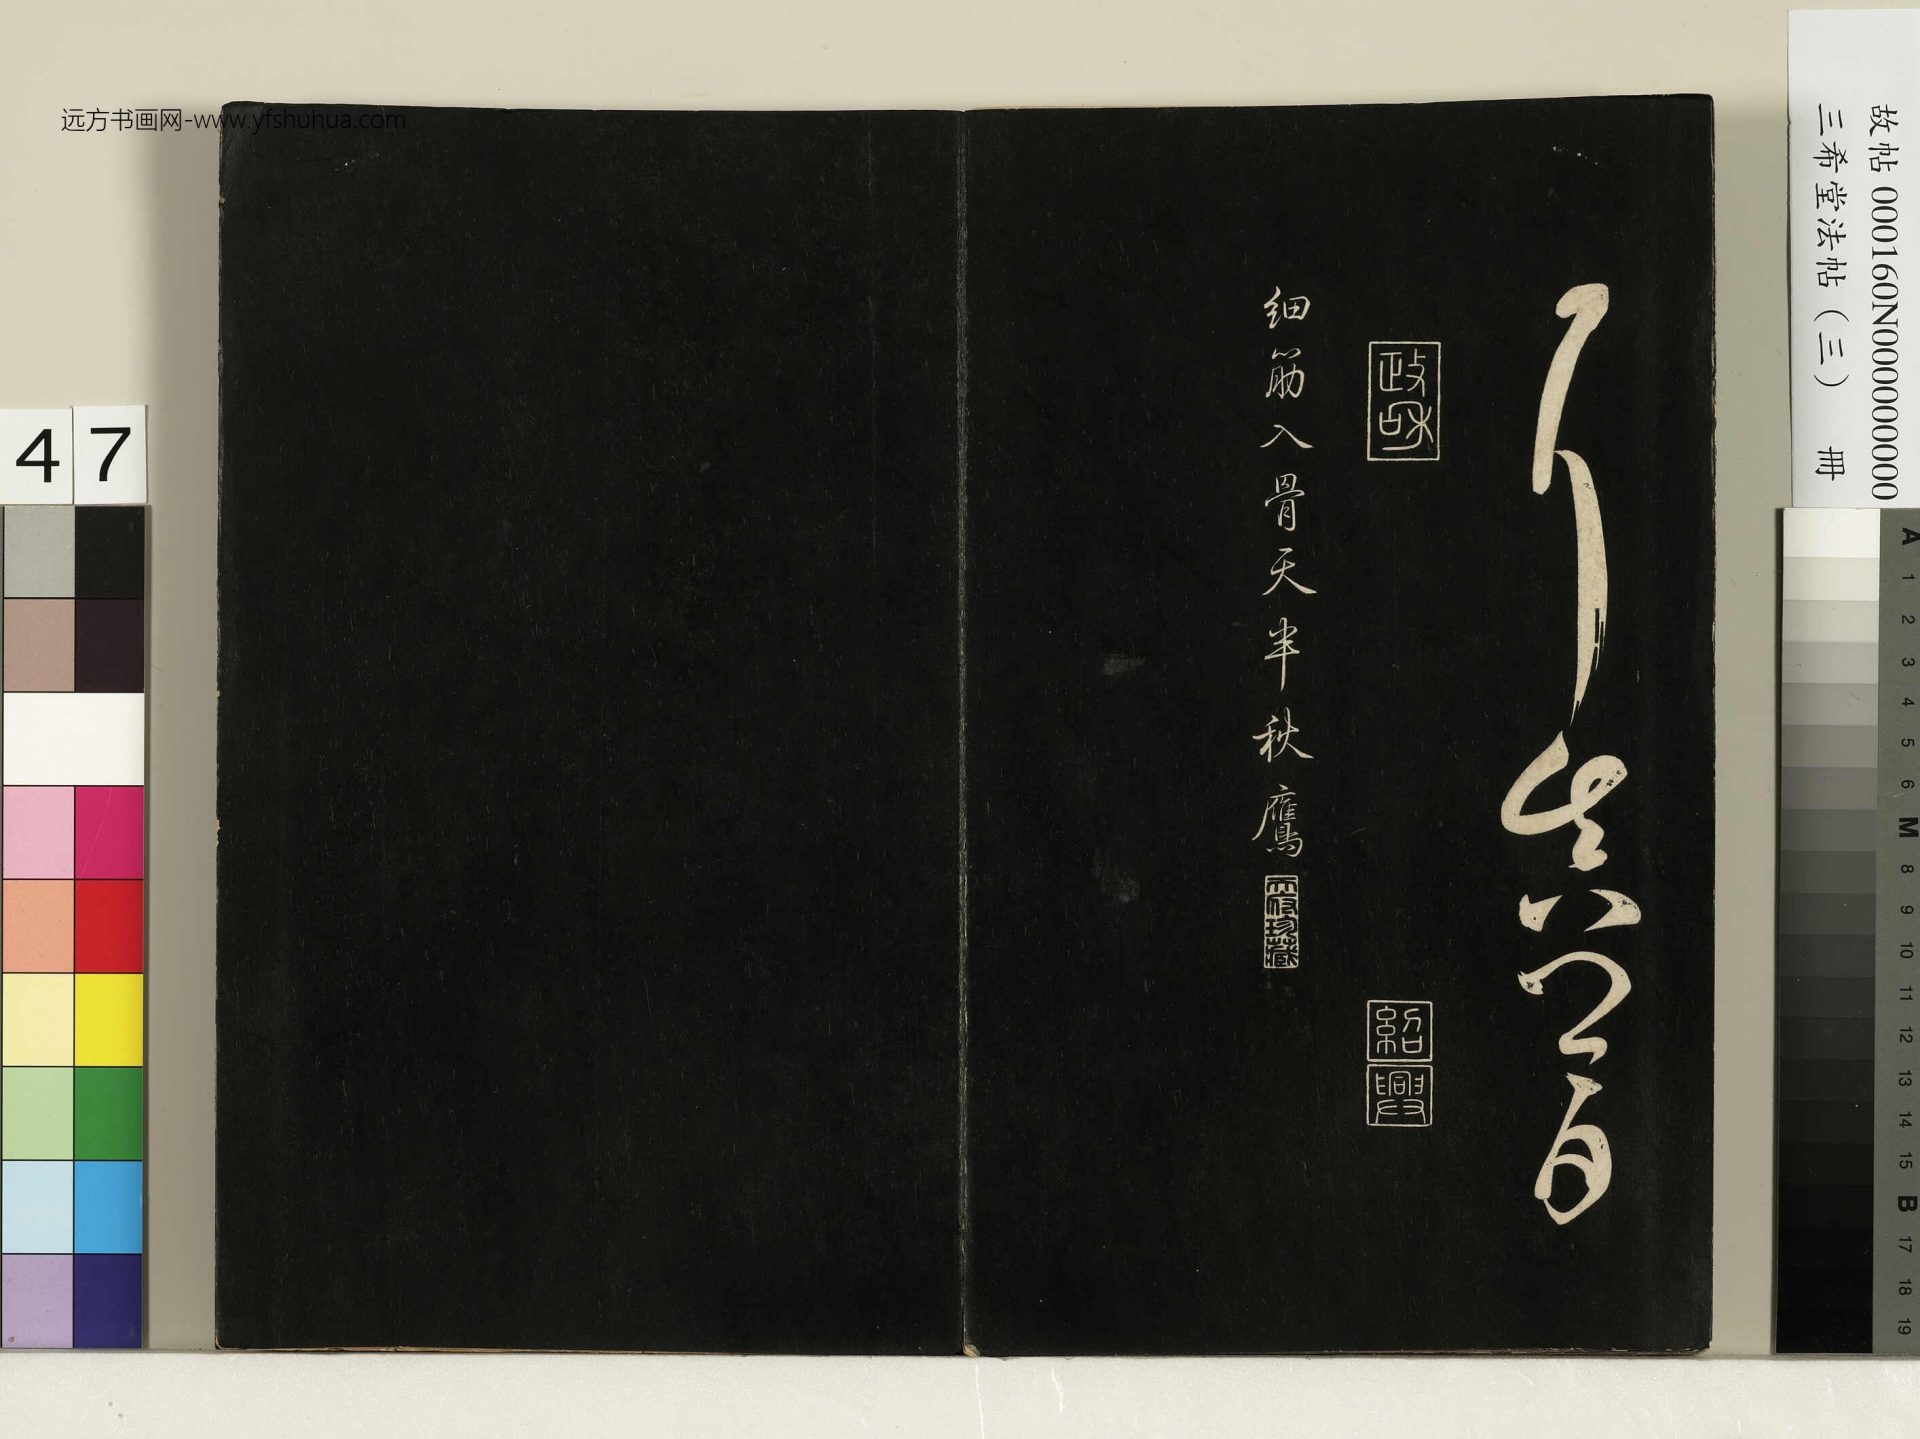 故帖 000160N000000000
三希堂法帖（三） 冊
政和
紹興
细筋入骨天半秋鷹
天府珍藏
远方书画网-www.yfshuhua.com
47
A
1
2
3
4
5
6
M
8
9
10
11
12
13
14
15
B
17
18
19